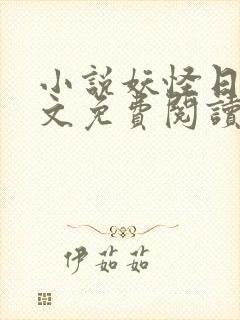 小説妖怪日
文免費閱讀
伊茹茹